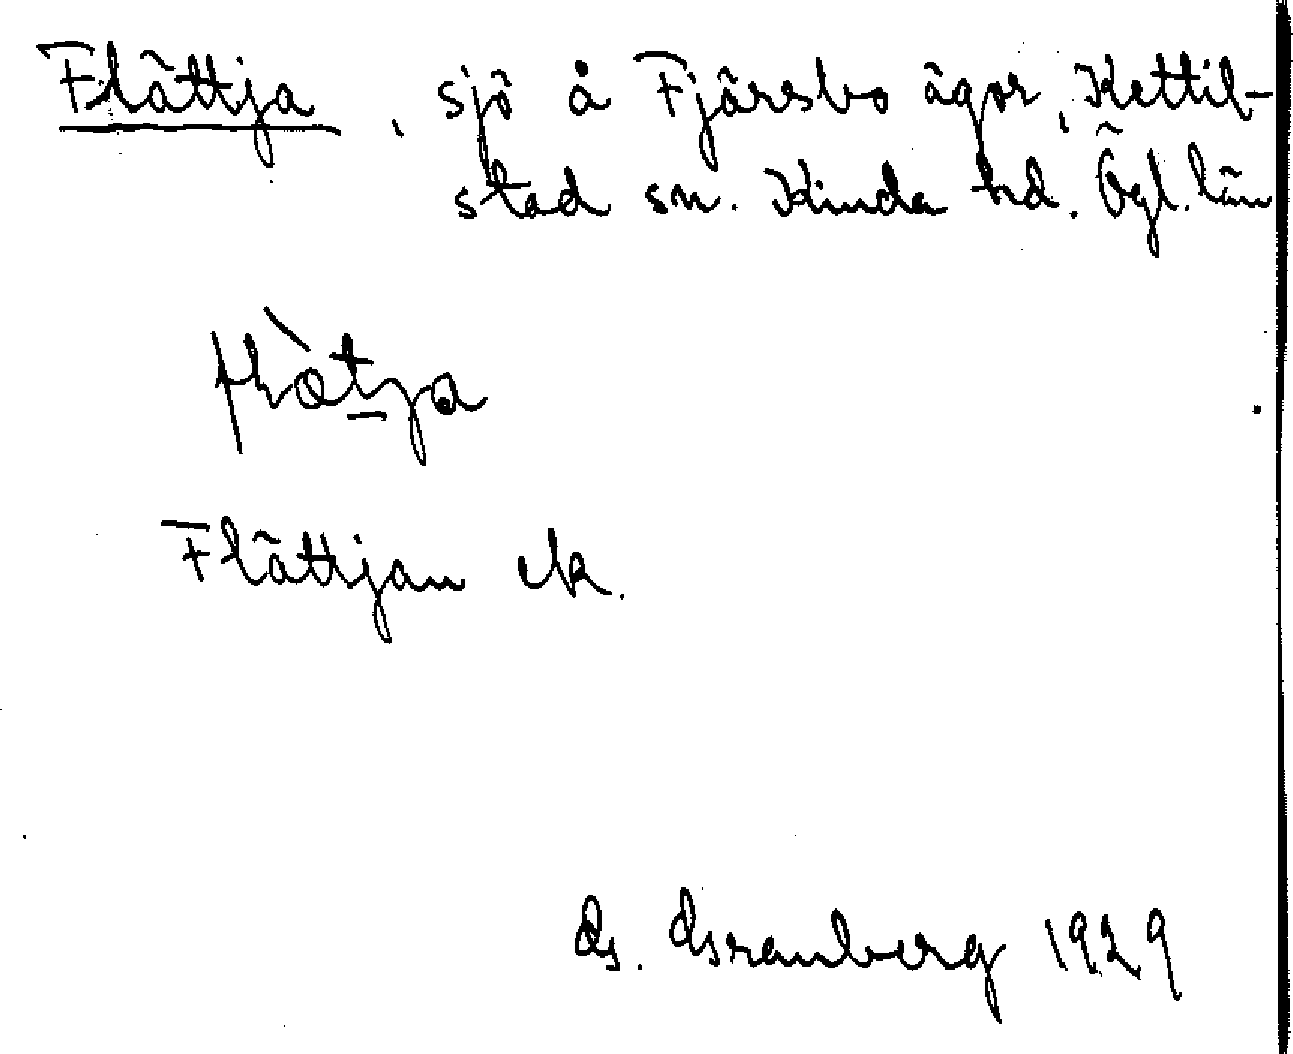 Flättja, sjö å Fjärsbo ägor, Kettil-
stad sn. Kinda hd. Ögl. län
Flättjan ek.
G. Granberg 1929